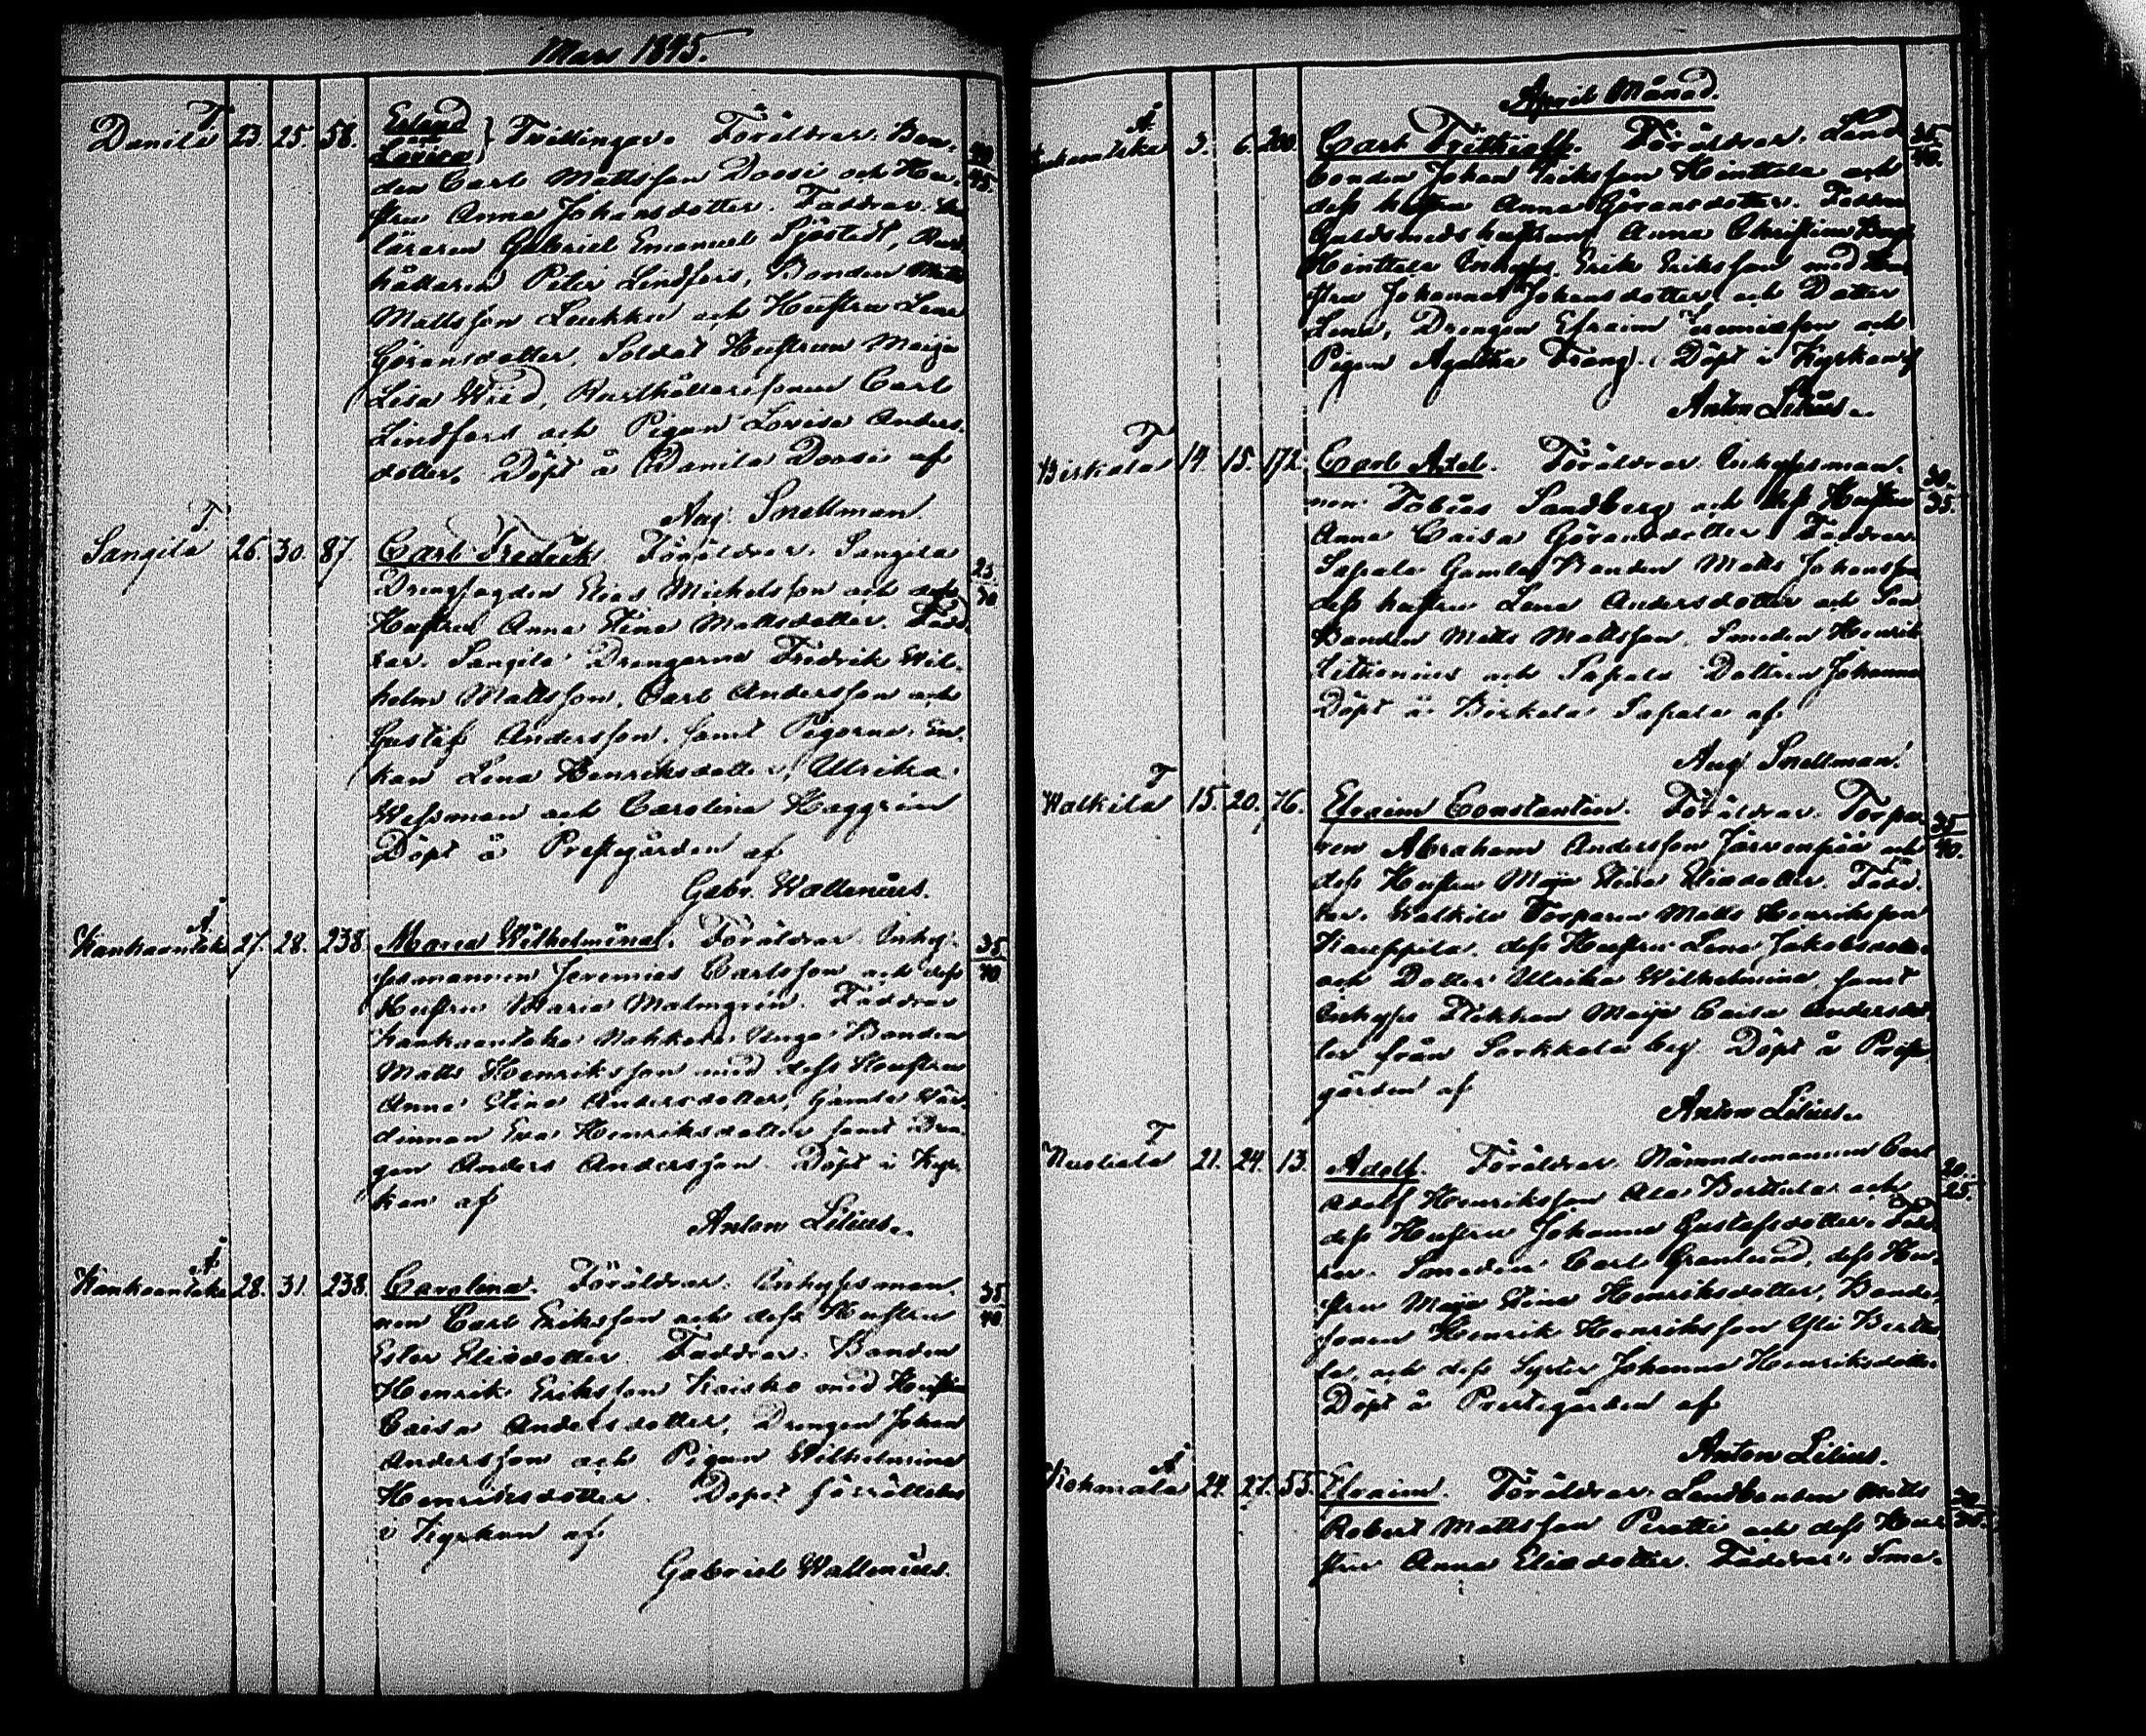 Mars 1845.
T
Danila 23. 25. 58. Erland
och
Lovisa } Tvillingar. Föräldrar. Bon-
40
45.
den Carl Mattsson Doosi och Hu-
stru Anna Johansdotter. Faddrar.
läraren Gabriel Emanuel Sjöstedt,
hållaren Peter Lindfors, Bonden Matts
Mattsson Leukku och Hustru Lena
Göransdotter, Soldat Hustrun Maija
Lisa Wred, Carl
Lindfors och Pigan Lovisa Anders-
dotter. Döpt å Danila Doosi af
Aug. Snellman.
T
Sangila 26. 30. 87. Carl Fredrik. Föräldrar. Sangila
25.
30
Drengfogden Elias Michelsson och dess
Hustru Anna Stina Mattsdotter. Fadd-
rar. Sangila Drengarna Fredrik Wil-
helm Mattsson, Carl Andersson och
Gustaf Andersson, samt Pigorna, En-
kan Lena Henriksdotter, Ulrika
Wessman och Carolina Haggrén
Döpt å Prestegården af
Gabr. Wallenius.
Å
Kankaantaka 27. 28. 238. Maria Wilhelmina. Föräldrar. Inhy-
35
40
sesmannen Jeremias Carlsson och dess
Hustru Maria Malmgrén. Faddrar
Kankaantaka Nohkola Unga Bonden
Matts Henriksson med dess Hustru
Anna Stina Andersdotter, Gamla Vär-
dinnan Eva Henriksdotter samt Dren-
gen Anders Andersson. Döpt i Kyr-
kan af
Anton Lilius.
Å
Kankaantaka 28. 31. 238. Carolina. Föräldrar. Inhysesman-
35
40
nen Carl Eriksson och dess Hustru
Ester Eliædotter. Faddrar. Bonden
Henrik Eriksson Kaisko med Hustru
Caisa Andersdotter, Drengen Johan
Andersson och Pigan Wilhelmina
Henriksdotter. Dopet förrättades
i Kyrkan af
Gabriel Wallenius.
April Månad.
Å
3. 6. 200. Carl Frithioff. Föräldrar. Land-
35
40.
bonden Johan Eriksson Hinttala och
dess hustru Anna Göransdotter. Faddrar
Guldsmeds hustrun Anna Christina
Hinttala Inhyses Erik Eriksson med Hu-
stru Johanna Johansdotter och Dotter
Lena, Drengen Efraim Jeremiasson och
Pigan Agatha Frang. Döpt i Kyrkan af
Anton Lilius.
T
Birkala 14. 15. 172. Carl Axel. Föräldrar. Inhysesman-
30.
35.
nen Tobias Sandberg och dess Hustru
Anna Caisa Göransdotter. Faddrar.
Sapala Gamla Bonden Matts Johansson
dess hustru Lena Andersdotter och Son
Bonden Matts Mattsson, Smeden Henrik
och Sapala Dottren Johanna
Döpt å Birkala Sapala af
Aug. Snellman.
T
Walkila 15. 20. 76. Efraim Constantin. Föräldrar. Torpa-
35
40.
ren Abraham Andersson Järvenpää och
dess Hustru Maja Stina Eliædotter. Fadd-
rar. Walkila Torparen Matts Henriksson
Kauppila, dess Hustru Lena Jakobsdotter
och Dotter Ulrika Wilhelmina, samt
Inhyses Flickan Maija Caisa Andersdot-
ter från Sorkkala by. Döpt å Prest-
gården af
Anton Lilius.
T
21. 24. 13. Adolf. Föräldrar. Nämndemannen Carl
20.
25.
Adolf Henriksson Ala Berttula och
dess Hustru Johanna Gustafsdotter. Fadd-
rar. Smeden Carl Granlund, dess Hu-
stru Maja Stina Henriksdotter, Bonde-
sonen Henrik Henriksson Yli Berttu-
la, och dess Syster Johanna Henriksdotter
Döpt å Prestegården af
Anton Lilius.
Å
Kohmala 24. 27. 55. Efraim. Föräldrar. Landbonden Matts
Robert Mattsson Peratti och dess Hu-
stru Anna Eliædotter. Faddrar. Sme-